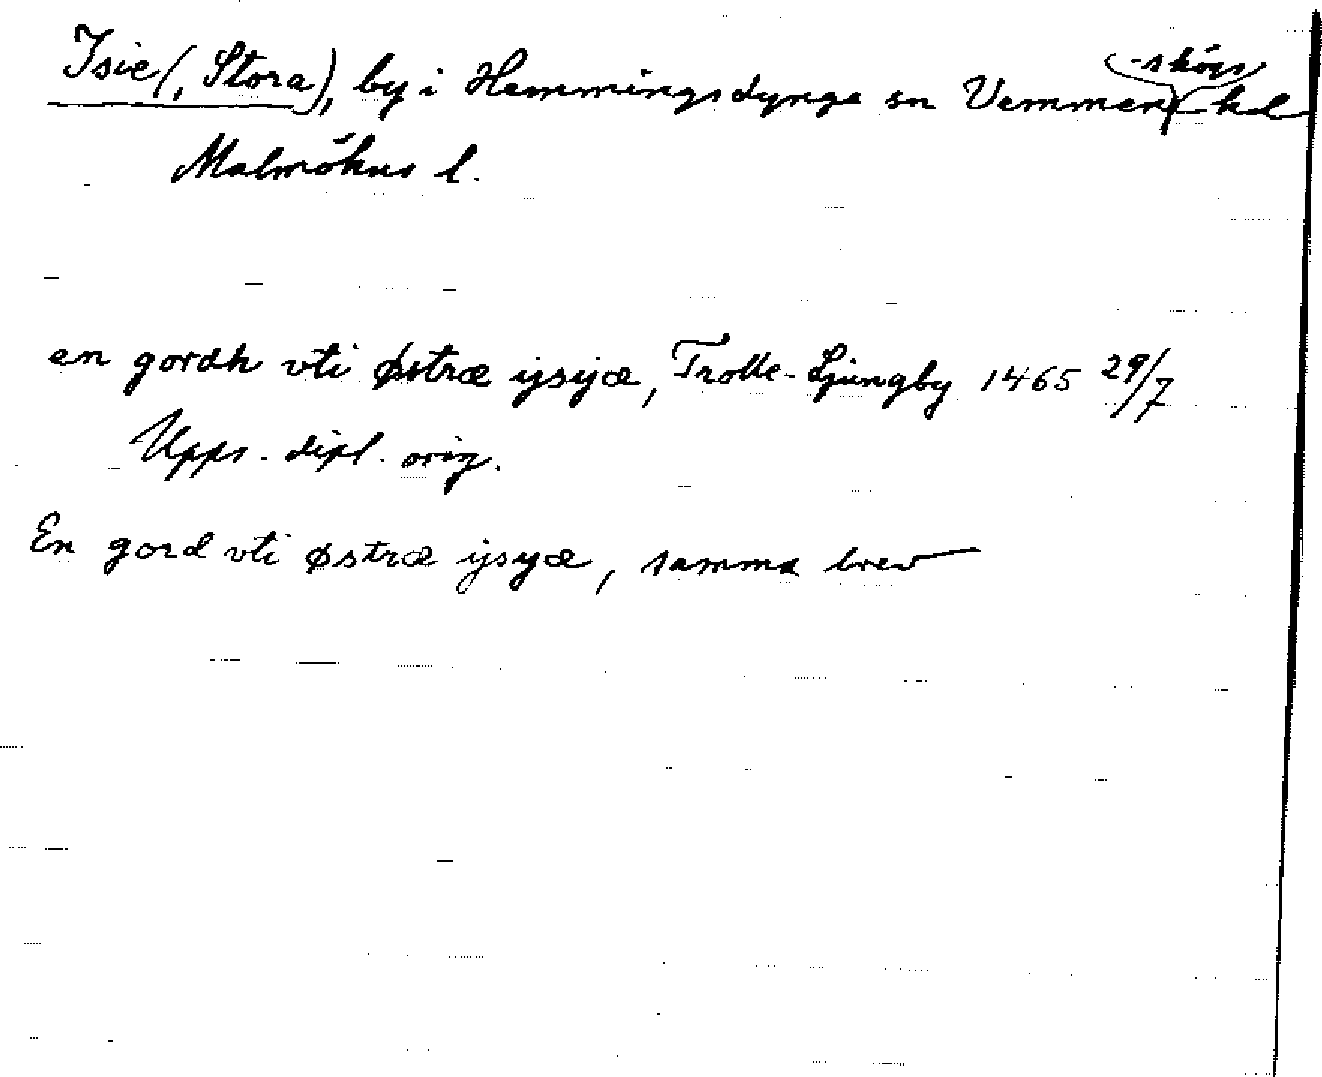 Isie (, Stora), by i Hemmingsdynge sn Vemmenhögs hd
Malmöhus l.
en gordh vti østræ ysyæ, Trolle-Ljungby 1465 29/7
Upps. dipl. orig.
En gord vti østræ ysyæ, samma brev